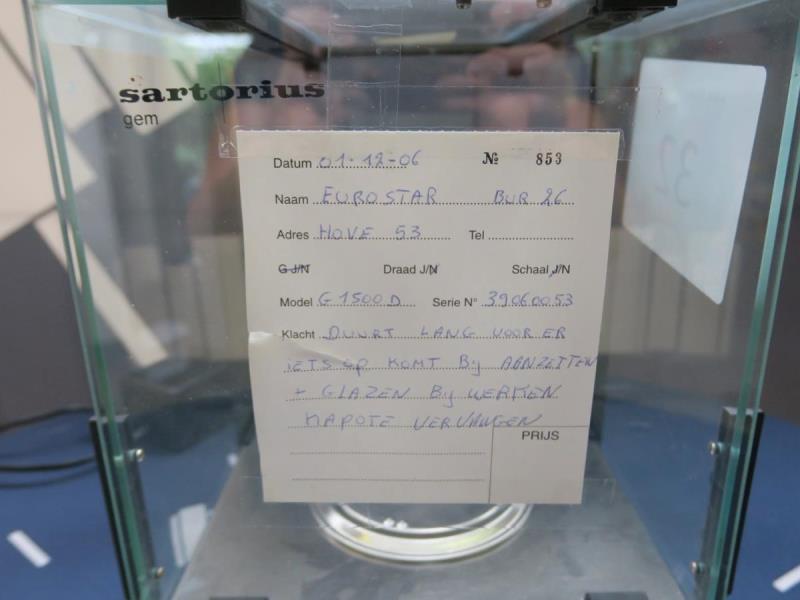 sartorius
gem
Datum 01-12-06 № 853
Naam EUROSTAR BUR 26
Adres HOVE 53 Tel
G J/N Draad J/N Schaal J/N
Model G1500D Serie N° 39060053
Klacht DUURT LANG VOOR ER
iETS op KOMT Bij AANZETTEN
+ GLAZEN Bij WERKEN
KAPOTE VERVANGEN
PRIJS
32